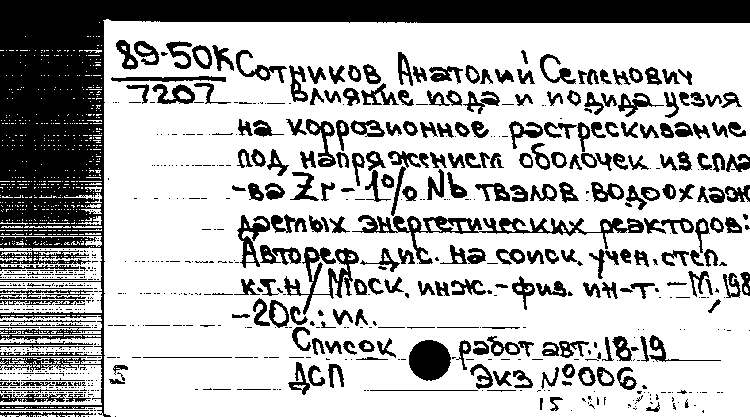 89-50К Сотников Анатолий Семенович
7207 Влияние иода и иодида цезия
на коррозионное растрескивание
под напряжением оболочек из спла
-ва Zr-1% Nb твэлов водоохлаж
даемых энергетических реакторов:
Автореф. дис. на соиск. учен. степ.
к.т.н / Моск. инж.-физ. ин-т. – М., 198
-20с.: ил.
Список работ авт.: 18-19
ДСП Экз №006.